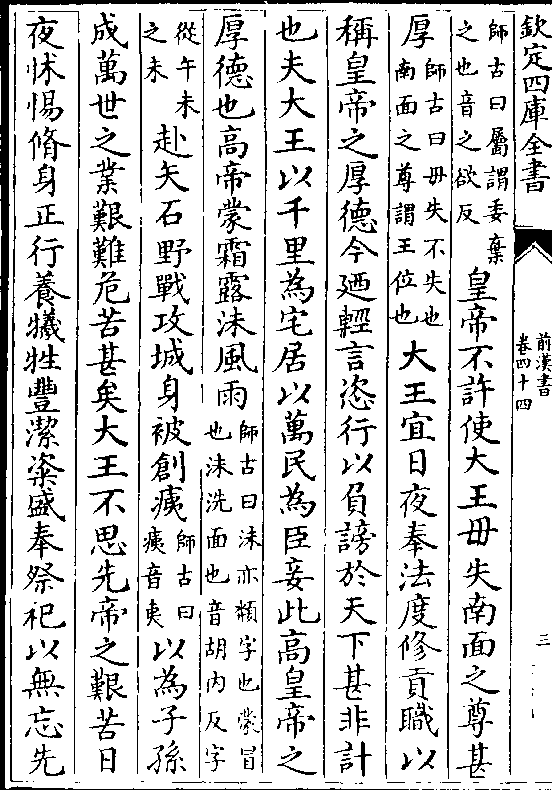 欽定四庫全書
前漢書
卷四十四
三
師古曰屬謂委棄
之也音之欲反
皇帝不許使大王毋失南面之尊甚
厚
師古曰毋失不失也
南面之尊謂王位也
大王宜日夜奉法度修貢職以
稱皇帝之厚德今廼輕言恣行以負謗於天下甚非計
也夫大王以千里為宅居以萬民為臣妾此高皇帝之
厚德也高帝蒙霜露沬風雨
師古曰沬亦頮字也蒙冒
也沬洗面也音胡内反字
從午未
之未
赴矢石野戰攻城身被創痍
師古曰
痍音夷
以為子孫
成萬世之業艱難危苦甚矣大王不思先帝之艱苦日
夜怵惕脩身正行養犧牲豐潔粢盛奉祭祀以無忘先